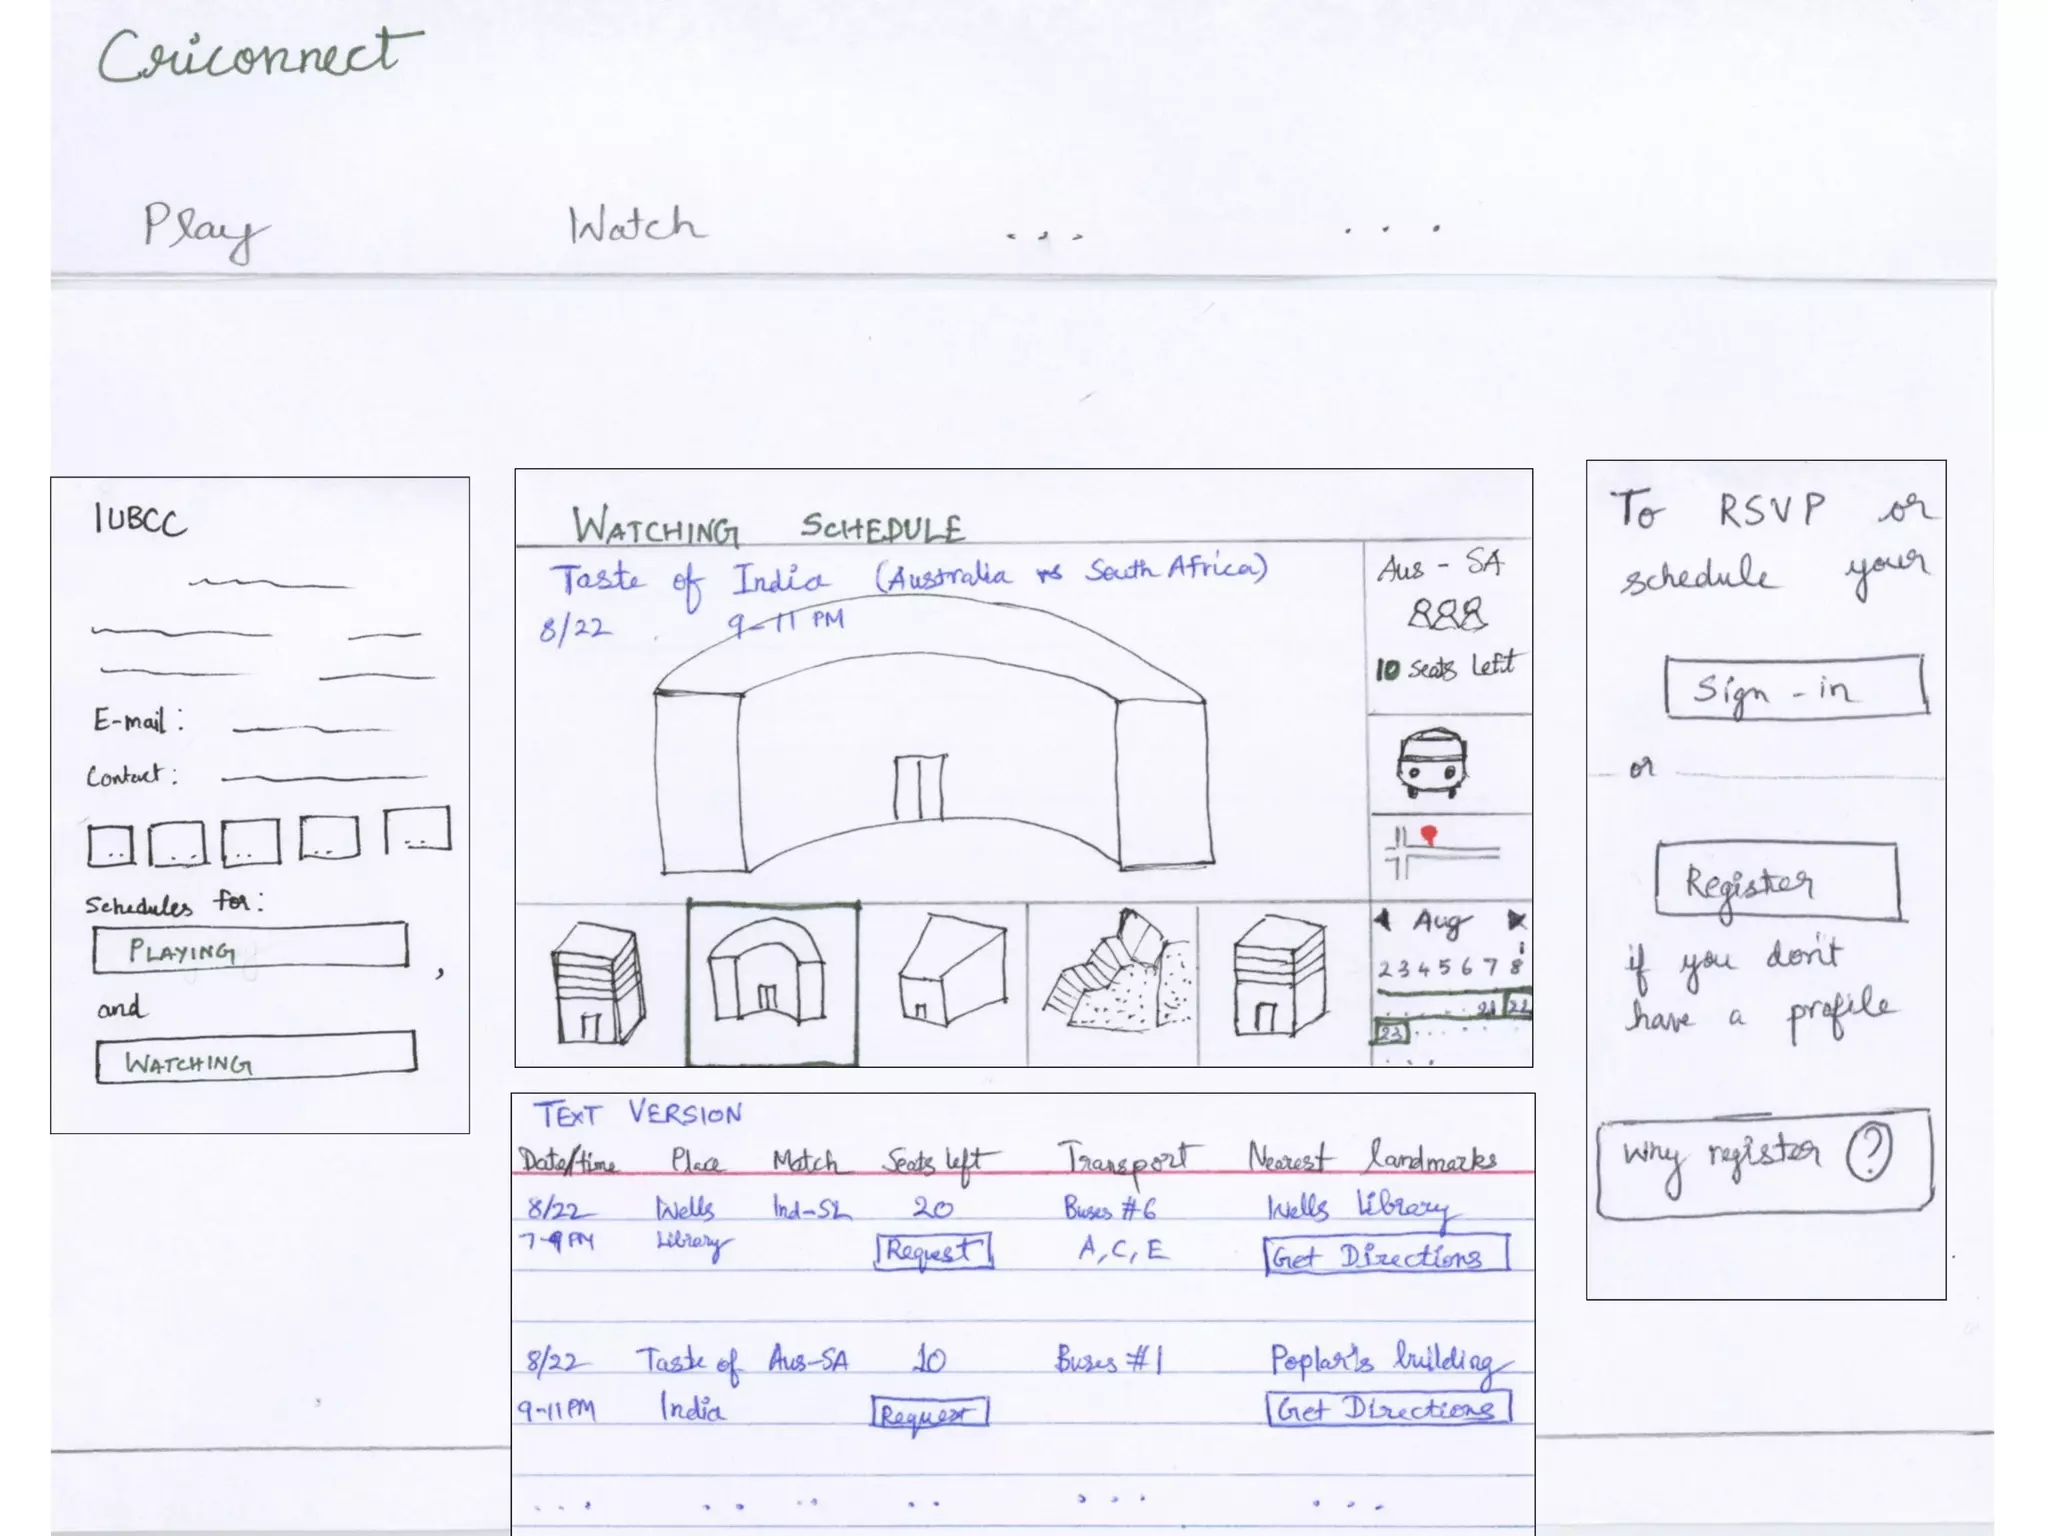 Criconnect
Play Watch ... ...
IUBCC
E-mail:
Contact:
Schedules for:
PLAYING
,
and
WATCHING
WATCHING SCHEDULE
Taste of India (Australia vs South Africa)
8/22 9-11 PM
Aus - SA
10 seats left
Aug
1
2 3 4 5 6 7 8
21 22
23
TEXT VERSION
Date/time Place Match Seats left Transport Nearest landmarks
8/22 Wells Ind-SL 20 Buses #6 Wells Library
7-9 PM Library Request A, C, E Get Directions
8/22 Taste of Aus-SA 10 Buses #1 Poplar's building
9-11 PM India Request Get Directions
... .. .. .. ... ...
To RSVP or
schedule your
Sign-in
or
Register
if you don't
have a profile
Why register ?